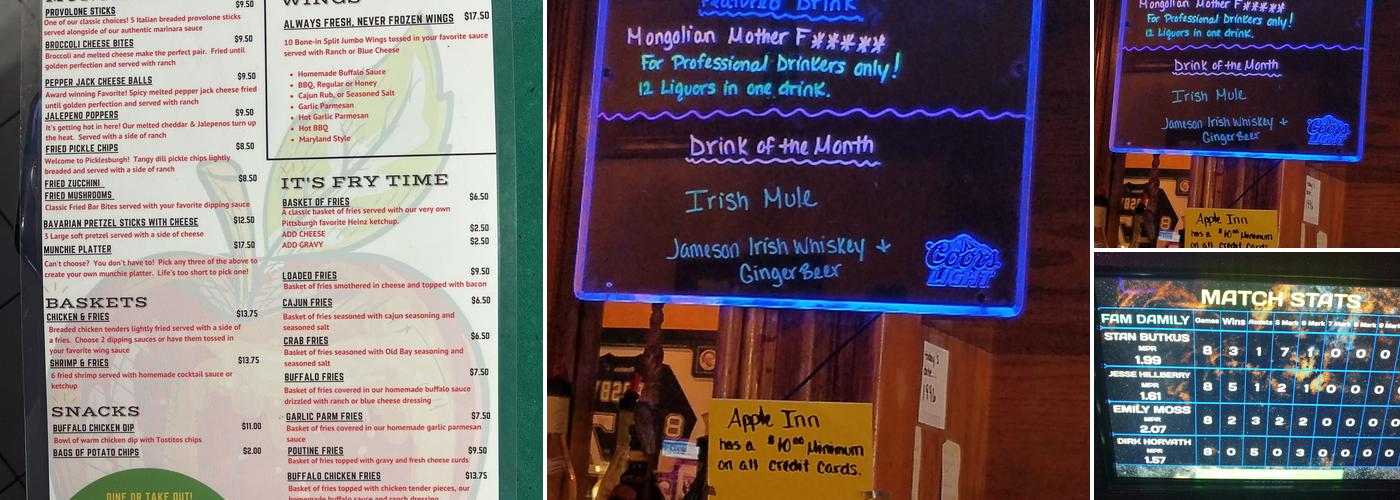 PROVOLONE STICKS
$9.50
One of our classic choices! 5 Italian breaded provolone sticks
served alongside of our authentic marinara sauce
BROCCOLI CHEESE BITES
$9.50
Broccoli and melted cheese make the perfect pair. Fried until
golden perfection and served with ranch
PEPPER JACK CHEESE BALLS
$9.50
Award winning Favorite! Spicy melted pepper jack cheese fried
until golden perfection and served with ranch
JALEPENO POPPERS
$9.50
It's getting hot in here! Our melted cheddar & Jalepenos turn up
the heat. Served with a side of ranch
FRIED PICKLE CHIPS
$8.50
Welcome to Picklesburgh! Tangy dill pickle chips lightly
breaded and served with a side of ranch
FRIED ZUCCHINI
$8.50
FRIED MUSHROOMS
Classic Fried Bar Bites served with your favorite dipping sauce
BAVARIAN PRETZEL STICKS WITH CHEESE
$12.50
3 Large soft pretzel served with a side of cheese
MUNCHIE PLATTER
$17.50
Can't choose? You don't have to! Pick any three of the above to
create your own munchie platter. Life's too short to pick one!
BASKETS
CHICKEN & FRIES
$13.75
Breaded chicken tenders lightly fried served with a side of
a fries. Choose 2 dipping sauces or have them tossed in
your favorite wing sauce
SHRIMP & FRIES
$13.75
6 fried shrimp served with homemade cocktail sauce or
ketchup
SNACKS
BUFFALO CHICKEN DIP
$11.00
Bowl of warm chicken dip with Tostitos chips
BAGS OF POTATO CHIPS
$2.00
DINE OR TAKE OUT!
WINGS
ALWAYS FRESH, NEVER FROZEN WINGS
$17.50
10 Bone-in Split Jumbo Wings tossed in your favorite sauce
served with Ranch or Blue Cheese
Homemade Buffalo Sauce
BBQ, Regular or Honey
Cajun Rub, or Seasoned Salt
Garlic Parmesan
Hot Garlic Parmesan
Hot BBQ
Maryland Style
IT'S FRY TIME
BASKET OF FRIES
$6.50
A classic basket of fries served with our very own
Pittsburgh favorite Heinz ketchup.
ADD CHEESE
$2.50
ADD GRAVY
$2.50
LOADED FRIES
$9.50
Basket of fries smothered in cheese and topped with bacon
CAJUN FRIES
$6.50
Basket of fries seasoned with cajun seasoning and
seasoned salt
CRAB FRIES
$6.50
Basket of fries seasoned with Old Bay seasoning and
seasoned salt
BUFFALO FRIES
$7.50
Basket of fries covered in our homemade buffalo sauce
drizzled with ranch or blue cheese dressing
GARLIC PARM FRIES
$7.50
Basket of fries covered in our homemade garlic parmesan
sauce
POUTINE FRIES
$9.50
Basket of fries topped with gravy and fresh cheese curds
BUFFALO CHICKEN FRIES
$13.75
Basket of fries topped with chicken tender pieces, our
homemade buffalo sauce and ranch dressing
Featured Drink
Mongolian Mother F*****
For Professional Drinkers only!
12 Liquors in one drink.
Drink of the Month
Irish Mule
Jameson Irish Whiskey +
Ginger Beer
COORS
LIGHT
Apple Inn
has a $10.00 Minimum
on all credit cards.
Mongolian Mother F*****
For Professional Drinkers only!
12 Liquors in one drink.
Drink of the Month
Irish Mule
Jameson Irish Whiskey +
Ginger Beer
COORS
LIGHT
Apple Inn
has a $10.00 Minimum
on all credit cards
MATCH STATS
FAM DAMILY Games Wins Assists 5 Mark 6 Mark 7 Mark 8 Mark 9 Mark
STAN BUTKUS
MPR
1.99
8 3 1 7 1 0 0 0
JESSE HILLBERRY
MPR
1.61
8 5 1 2 1 0 0 0
EMILY MOSS
MPR
2.07
8 2 3 2 2 0 0 0
DIRK HORVATH
MPR
1.57
8 0 5 0 3 0 0 0